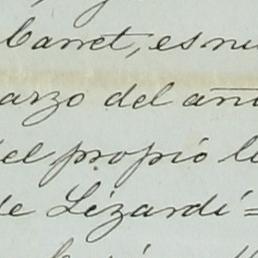 Canet, es nu
arzo del añ
el propio l
de Lizardi =